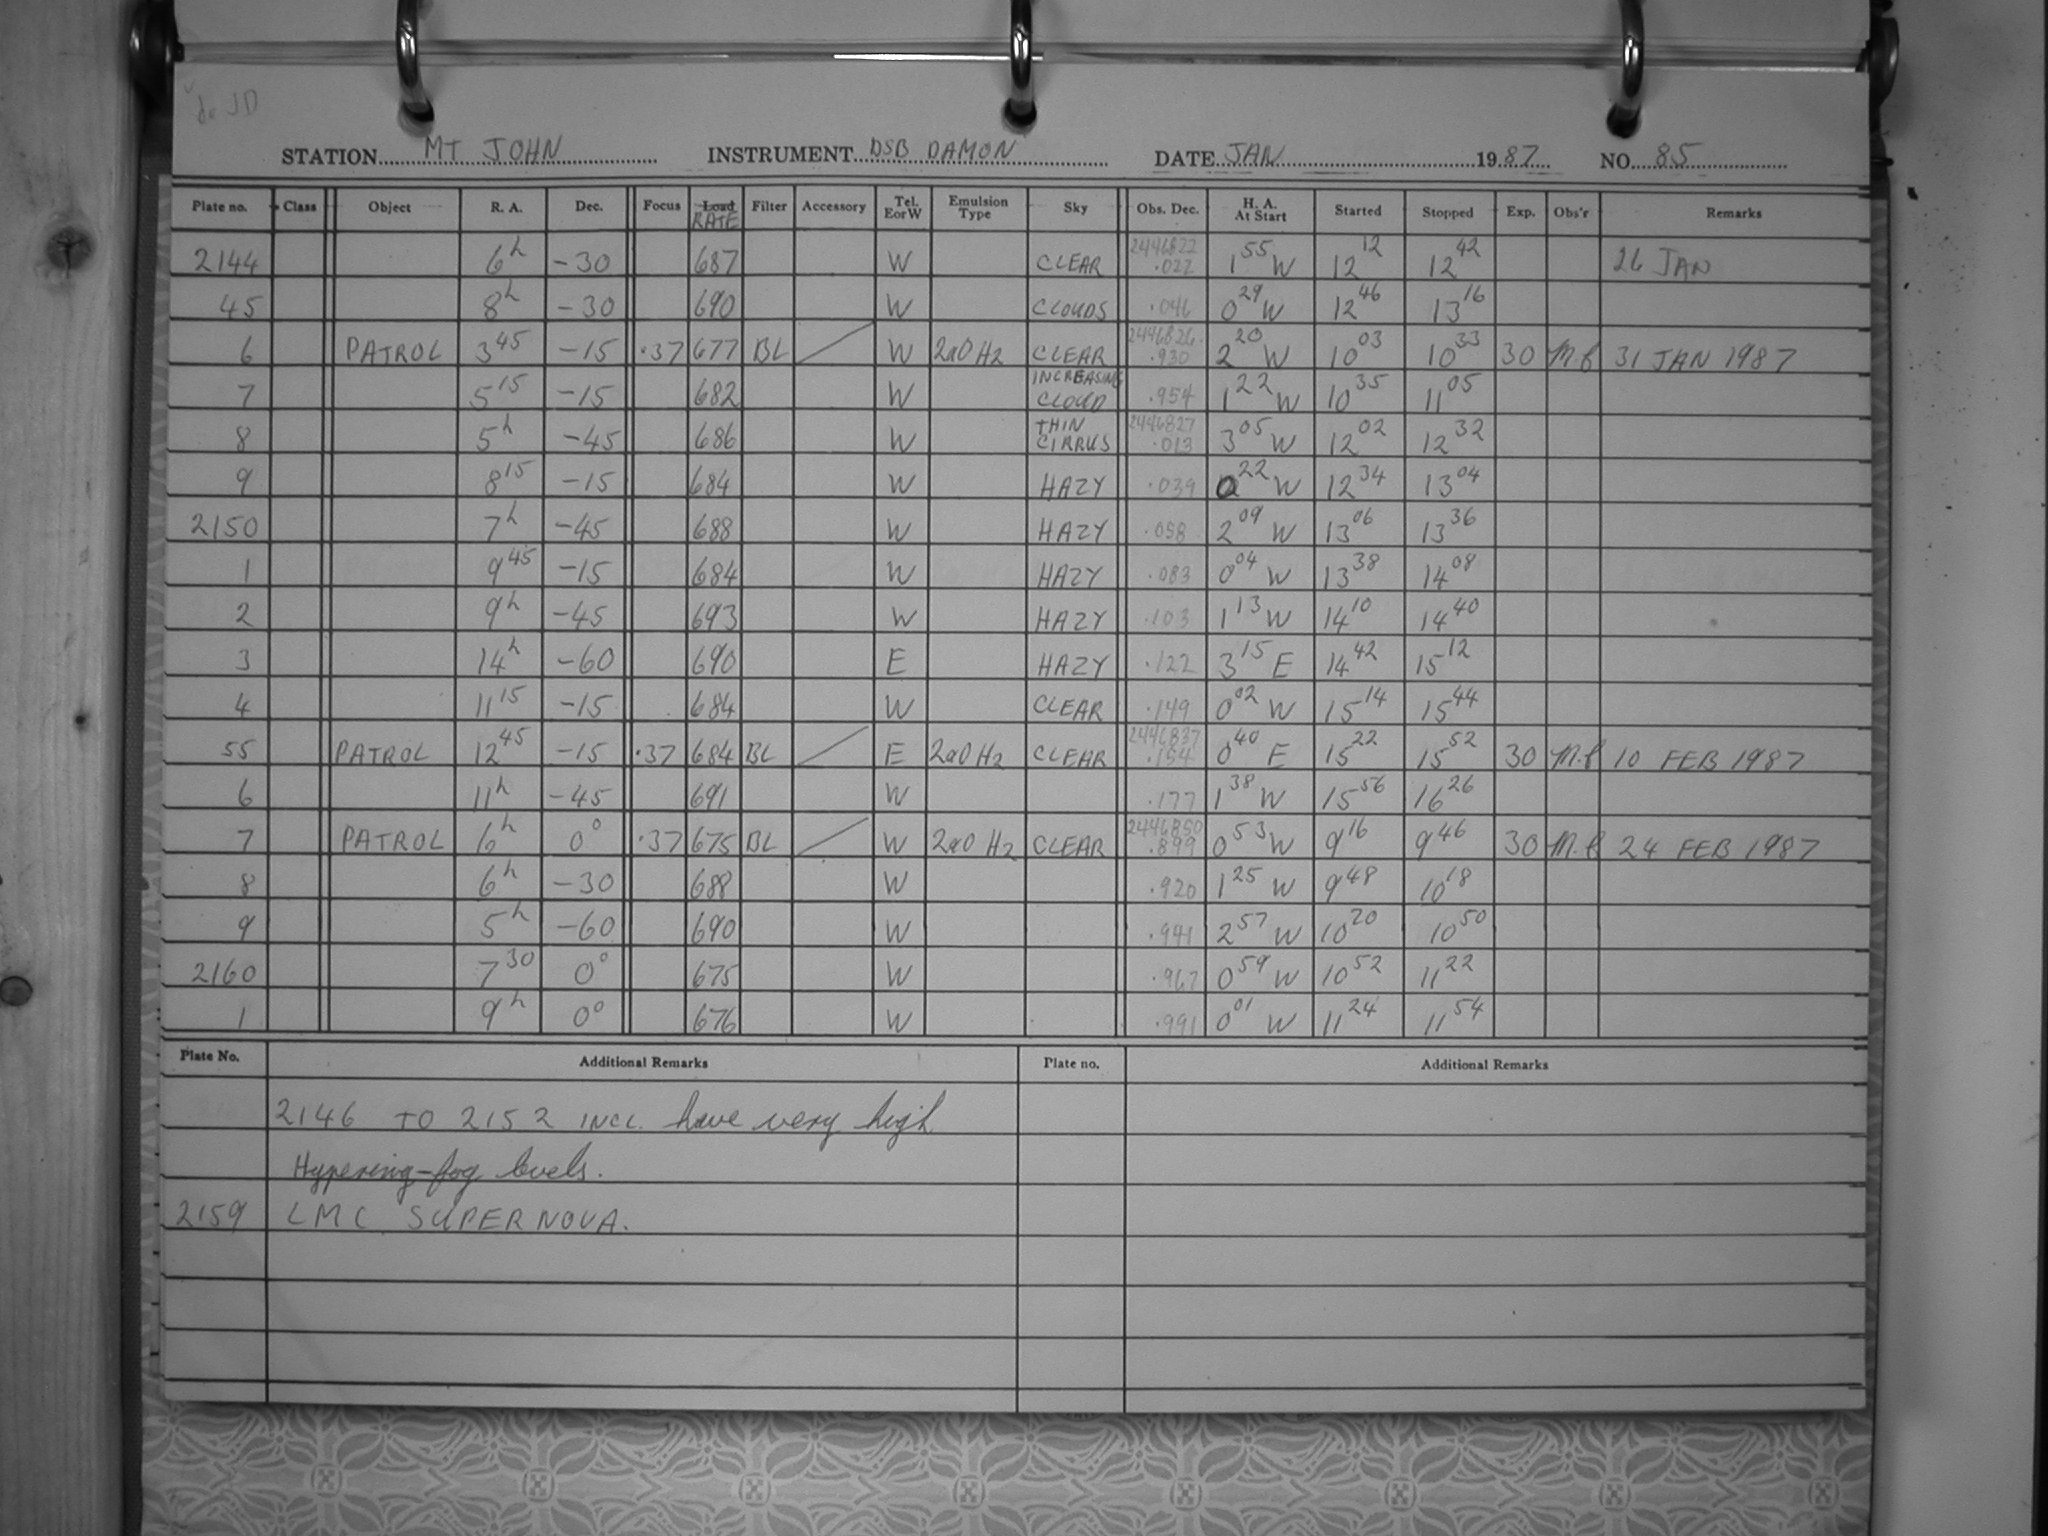 do JD
STATION MT JOHN INSTRUMENT DSB DAMON DATE JAN 1987 NO. 85
Plate no. Class Object R. A. Dec. Focus Load RATE Filter Accessory Tel. E or W Emulsion Type Sky Obs. Dec. H. A. At Start Started Stopped Exp. Obs'r Remarks
2144 6h -30 687 W CLEAR 2446822 .022 1 55 W 12 12 12 42 26 JAN
45 8h -30 690 W CLOUDS .046 0 29 W 12 46 13 16
6 PATROL 3 45 -15 .37 677 BL W 2aO H2 CLEAR 2446826. .930 2 20 W 10 03 10 33 30 M.C 31 JAN 1987
7 5 15 -15 682 W INCREASING CLOUD .954 1 22 W 10 35 11 05
8 5h -45 686 W THIN CIRRUS 2446827 .013 3 05 W 12 02 12 32
9 8 15 -15 684 W HAZY .039 0 22 W 12 34 13 04
2150 7h -45 688 W HAZY .058 2 09 W 13 06 13 36
1 9 45 -15 684 W HAZY .083 0 04 W 13 38 14 08
2 9h -45 693 W HAZY .103 1 13 W 14 10 14 40
3 14h -60 690 E HAZY .122 3 15 E 14 42 15 12
4 11 15 -15 684 W CLEAR .149 0 02 W 15 14 15 44
55 PATROL 12 45 -15 .37 684 BL E 2aO H2 CLEAR 2446837 .154 0 40 E 15 22 15 52 30 M.C 10 FEB 1987
6 11h -45 691 W .177 1 38 W 15 56 16 26
7 PATROL 6h 0° .37 675 BL W 2aO H2 CLEAR 2446850 .899 0 53 W 9 16 9 46 30 M.C 24 FEB 1987
8 6h -30 688 W .920 1 25 W 9 48 10 18
9 5h -60 690 W .941 2 57 W 10 20 10 50
2160 7 30 0° 675 W .967 0 59 W 10 52 11 22
1 9h 0° 676 W .991 0 01 W 11 24 11 54
Plate No. Additional Remarks Plate no. Additional Remarks
2146 TO 2152 INCL. have very high
Hypering-fog levels.
2159 LMC SUPERNOVA.